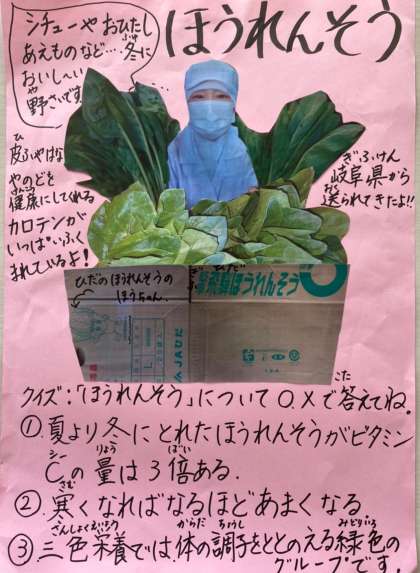 ほうれんそう
シチューや おひたし
あえものなど… 冬に
ふゆ
おいし〜い
野さいです
や
ぎふけん
岐阜県から
おく
送られてきたよ!!
ひ
皮ふやはな
やのどを
けんこう
健康にしてくれる
カロテンが
いっぱいふく
まれているよ!
ひだのほうれんそうの
ほうちゃん.
ひだ
飛騨ほうれんそう
JAひだ
L
こた
クイズ:「ほうれんそう」について○.×で答えてね
①.夏より冬にとれたほうれんそうがビタミン
シー りょう ばい
Cの量は3倍ある.
さむ
②.寒くなればなるほどあまくなる
さんしょくえいよう からだ ちょうし みどりいろ
③.三色栄養では.体の調子をととのえる緑色の
グループです.